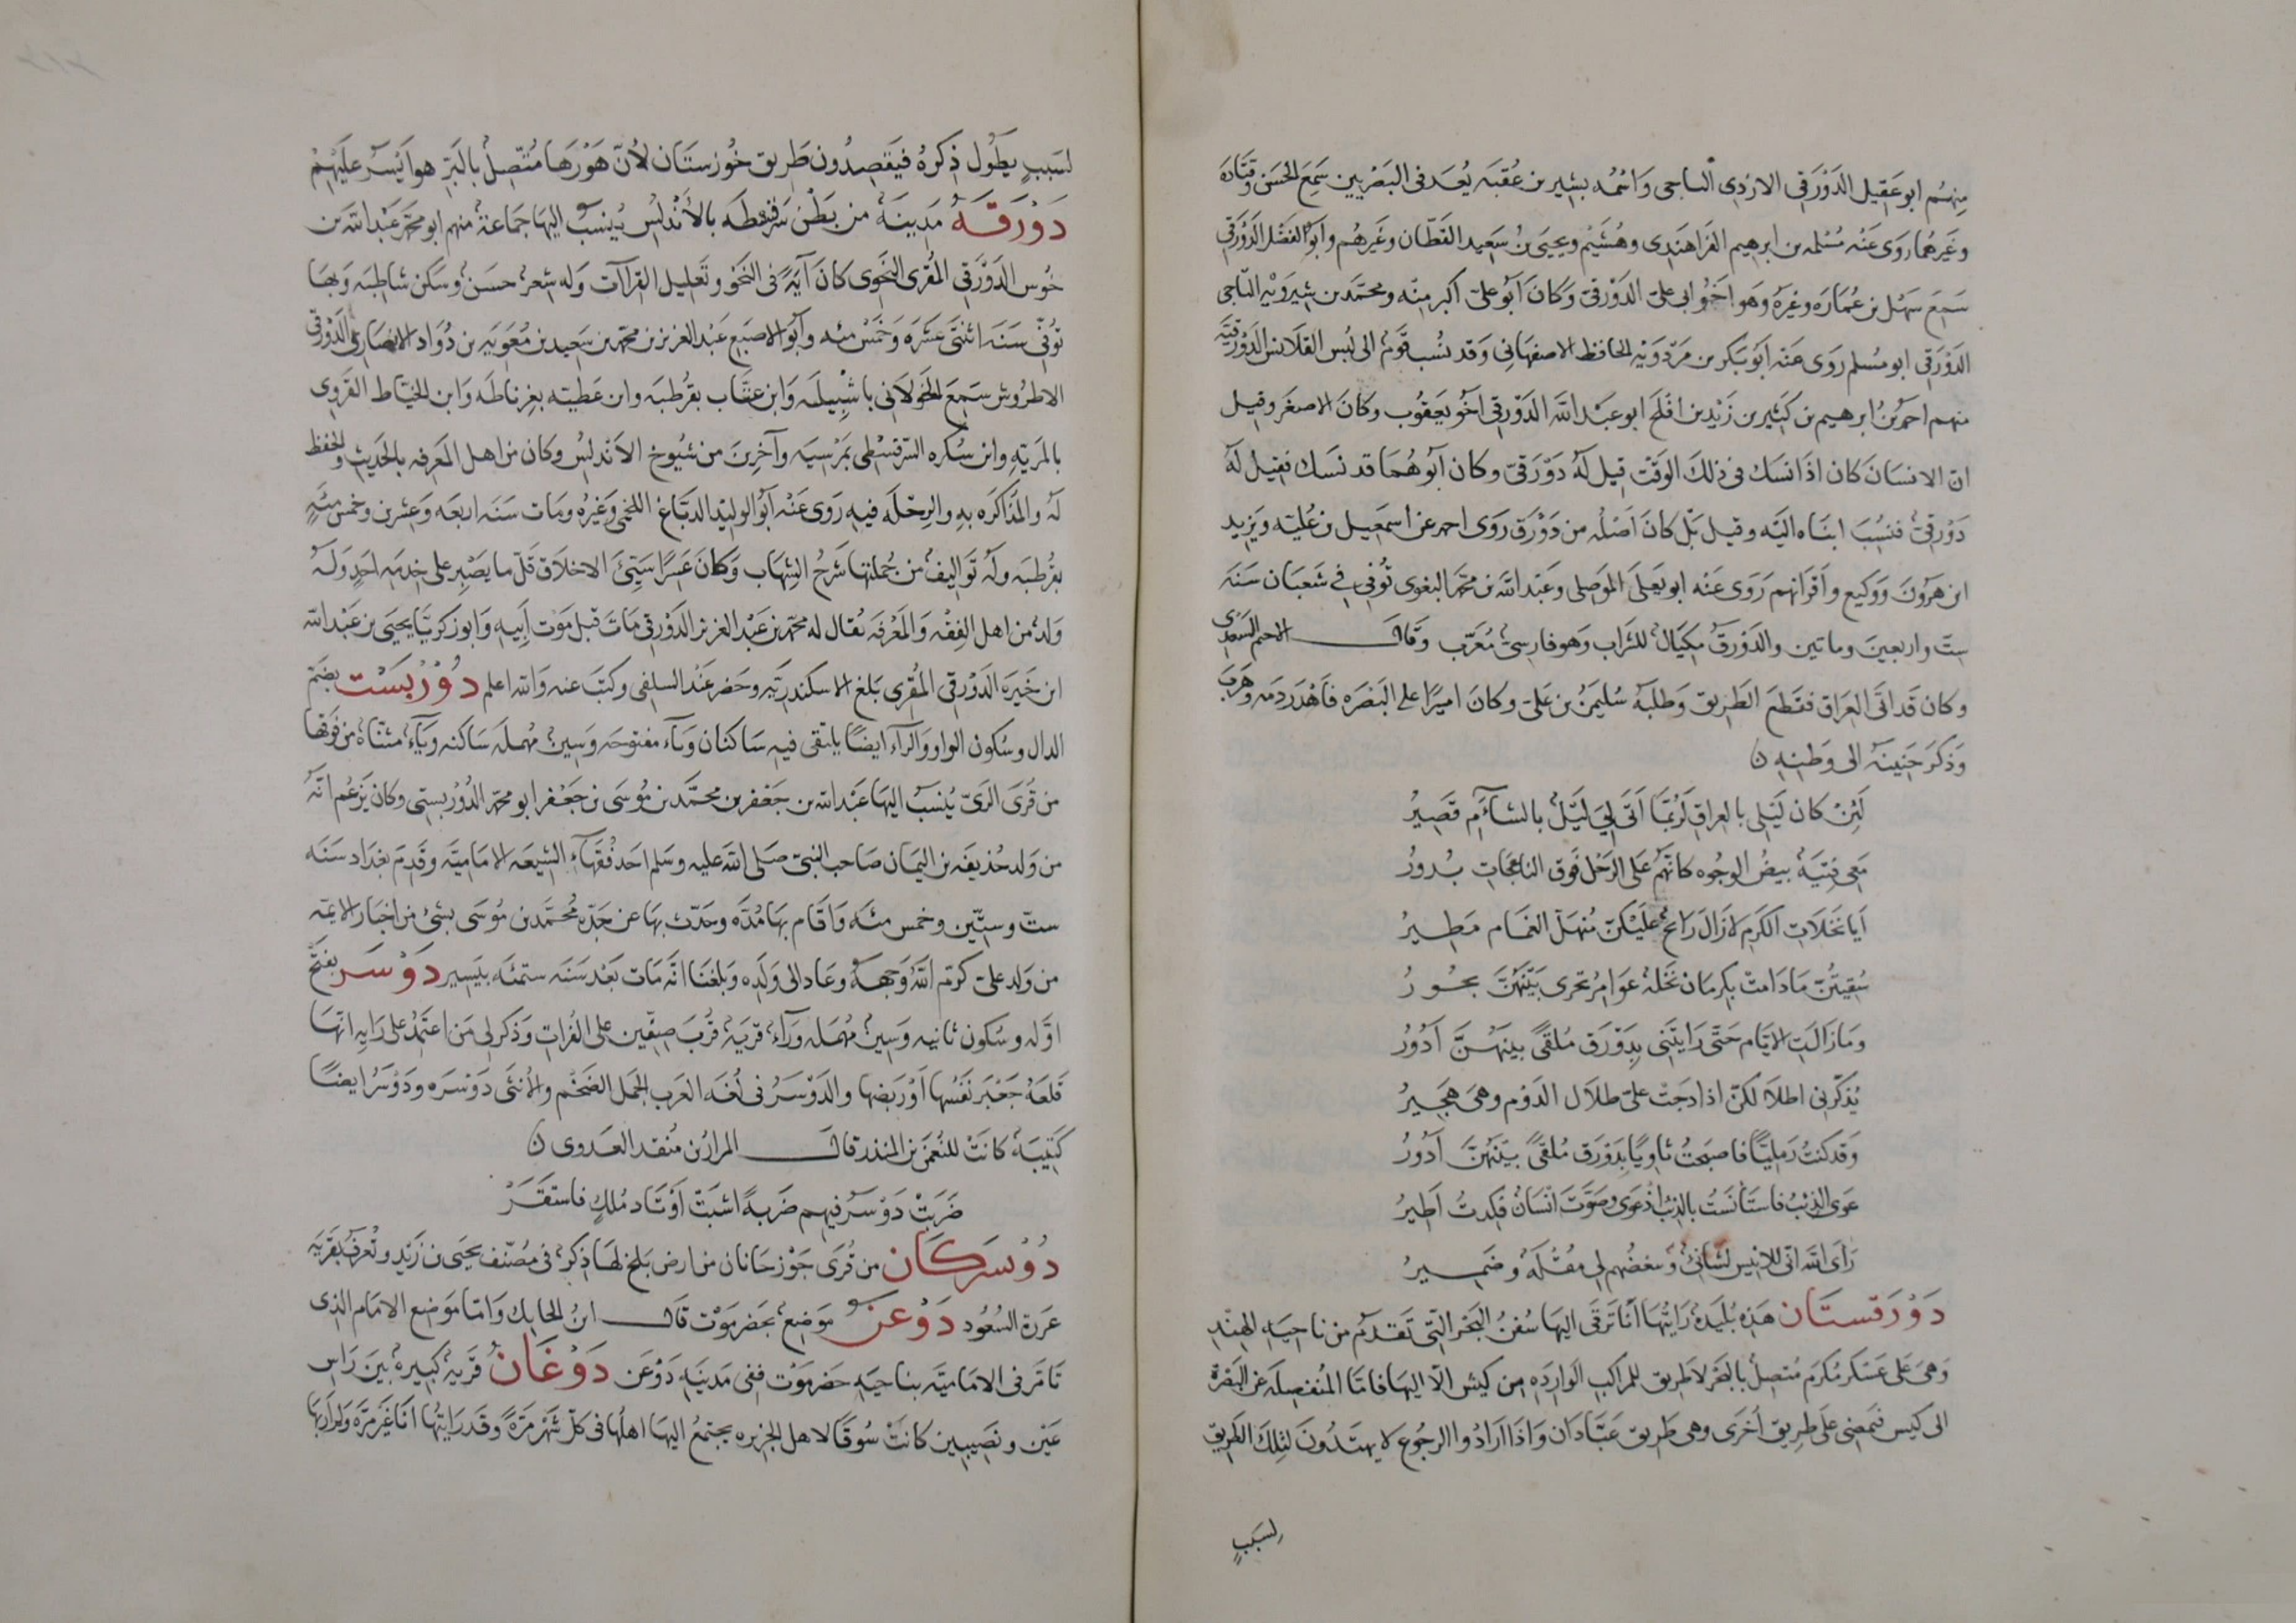 منهم ابو عقيل الدورقى الازدى الناجى واسمه بشير بن عقبه يُعد فى البصريين سمع الحسن وقتاده
وغيرهما روى عنه مسلمه بن ابرهيم الفراهندى وهُشَيم ويحيى بن سعيد القطان وغيرهم وابو الفضل الدورقى
سمع سهل بن عماره وغيره وهو اخو ابى على الدورقى وكان ابو على اكبر منه ومحمد بن شيرويه الناجى
الدورقى ابو مسلم روى عنه ابو بكر بن مردويه الحافظ الاصفهانى وقد نُسب قوم الى لُبس القلانس الدورقيَّه
منهم احمد بن ابرهيم بن كثير بن زيد بن افلح ابو عبد الله الدورقى اخو يعقوب وكان الاصغر وقيل
ان الانسان كان اذا نسك فى ذلك الوقت قيل له دورقىّ وكان ابوهما قد نسك فقيل له
دورقىّ فنُسب ابناه اليه وقيل بل كان اصله من دورق روى احمد عن اسمعيل بن عُليه ويزيد
ابن هرون ووكيع واقرانهم روى عنه ابو يعلى الموصلى وعبد الله بن محمد البغوى تُوفى فى شعبان سنه
ست واربعين وماتين والدورق مكيال للشراب وهو فارسىّ مُعرّب وقال الاحيمر السعدى
وكان قد اتى العراق فقطع الطريق وطلبه سليمن بن على وكان اميرًا على البصره فاهدر دمه وهرب
وذكر حنينه الى وطنه ن
لئِن كان ليلى بالعراق لربما اتى لى ليل بالشآم قصيرُ
معى فتية بيضُ الوجوه كانهم على الرحل فوق الناعجات بدورُ
ايا نخلات الكرم لا زال رائح عليكن منهل الغمام مطيرُ
سُقيتُن ما دامت بكرمان نخلة عوامر تجرى بينهن بحورُ
وما زالت الايام حتى رايتنى بدورق مُلقًى بينهن ادورُ
يُذكّرنى اطلالكن اذا دجت على ظلال الدوم وهى هجيرُ
وقد كنتُ رمليًا فاصبحتُ ثاويًا بدورق مُلقًى بينهن ادورُ
عوى الذئب فاستانستُ بالذئب اذ عوى وصوّت انسان فكدتُ اطيرُ
راى الله انى للانيس لشانئ وتبغضهم لى مُقلة وضميرُ
دَوْرَقستان هذه بُليدة رايتُها انا ترقى اليها سُفن البحر التى تقدم من ناحيه الهند
وهى على عسكر مكرم متصل بالبحر لا طريق للمراكب الوارده من كيش الا اليها فاما المنفصله عن البصرة
الى كيس فتمضى على طريق اخرى وهى طريق عبّادان واذا ارادوا الرجوع لا يهتدون لتلك الطريق
لسبب
لسبب يطول ذكره فيقصدون طريق خوزستان لان هورها متصل بالبر هو ايسر عليهم
دَوْرَقه مدينة من بطن سرقسطه بالاندلس يُنسب اليها جماعة منهم ابو محمد عبد الله بن
حُوس الدورقى المقرى النحوى كان آية فى النحو وتعليل القراآت وله شعر حسن وسكن شاطبه وبها
توفى سنه اثنتى عشره وخمس مئه وابو الاصبع عبد العزيز بن محمد بن سعيد بن معويه بن دؤاد الانصارى الدورقى
الاطروش سمع الخولانى باشبيله وابن عتّاب بقرطبه وابن عطيه بغرناطه وابن الخياط القروى
بالمريّه وابن سُكره السرقسطى بمرسيه وآخرين من شيوخ الاندلس وكان من اهل المعرفه بالحديث والحفظ
له والمذاكره به والرحله فيه روى عنه ابو الوليد الدباغ اللخمى وغيره ومات سنه اربعه وعشرين وخمس مئه
بقرطبه وله تواليف من جملتها شرح الشهاب وكان عسرًا سيّئ الاخلاق قل ما يصبر على خدمه احد وله
ولد من اهل الفقه والمعرفه يقال له محمد بن عبد العزيز الدورقى مات قبل موت ابيه وابو زكريا يحيى بن عبد الله
ابن خيره الدورقى المقرى بلغ الاسكندريه وحضر عند السلفى وكتب عنه والله اعلم دُوْرْبَسْت بضم
الدال وسكون الواو والرآء ايضًا يلتقى فيه ساكنان وبآء مفتوحه وسين مهمله ساكنه وتآء مثناه من فوقها
من قُرى الرىّ ينسب اليها عبد الله بن جعفر بن محمد بن موسى بن جعفر ابو محمد الدوربستى وكان يزعم انه
من ولد حذيفه بن اليمان صاحب النبى صلى الله عليه وسلم احد فقهآء الشيعه الاماميه وقدم بغداد سنه
ست وستين وخمس مئه واقام بها مُدّه وحدّث بها عن جدّه محمد بن موسى بشئ من اخبار الايمه
من ولد على كرّم الله وجهه وعاد الى ولده وبلغنا انه مات بعد سنه ستمئه بيسير دَوْسَر بفتح
اوله وسكون ثانيه وسين مهمله ورآء قرية قُرب صفّين على الفرات وذكر لى من اعتمد على رايه انها
قلعة جعبر نفسها او ربضها والدوسر فى لغه العرب الجمل الضخم والانثى دوسره ودوسر ايضًا
كتيبة كانت للنعمن بن المنذر قال المرار بن منقد العدوى ن
ضربت دوسر فيهم ضربةً اثبتت اوتاد ملكٍ فاستقر
دُوْسَركان من قرى جوزجانان من ارض بلخ لها ذكر فى مصنّف يحيى بن زيد وتُعرف بقريه
عرة السعود دَوْعَن موضع بحضرموت قال ابن الحايك واما موضع الامام الذى
تامر فى الاماميّه بناحيه حضرموت ففى مدينه دوعن دَوْغَانُ قرية كبيرة بين راس
عين ونصيبين كانت سوقًا لاهل الجزيره يجتمع اليها اهلها فى كل شهر مرةً وقد رايتها انا غير مرّه ولم ار بها